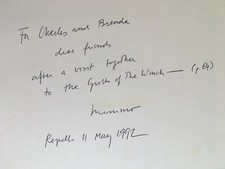 For Charles and Brenda
dear friends
after a visit together
to the Grotto of The Winch — (p. 64)
Mimmo
11 May 1992